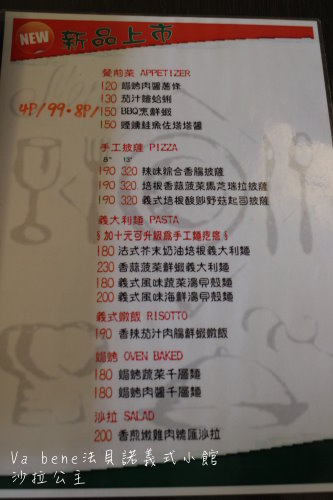 NEW 新品上市
營前菜 APPETIZER
120 焗烤肉醬薯條
130 茄汁燴蛤蜊
4P/99·8P/
150 BBQ烹鮮蝦
150 煙燻鮭魚佐塔塔醬
手工披薩 PIZZA
8" 13"
190 320 辣味綜合香腸披薩
190 320 培根香蒜菠菜馬芝瑞拉披薩
190 320 義式培根酸黴野菇起司披薩
義大利麵 PASTA
§加十元可升級為手工麵疙瘩§
180 法式芥末奶油培根義大利麵
230 香蒜菠菜鮮蝦義大利麵
180 義式風味蔬菜湯貝殼麵
200 義式風味海鮮湯貝殼麵
義式燉飯 RISOTTO
190 香辣茄汁肉腸鮮蝦燉飯
焗烤 OVEN BAKED
180 焗烤蔬菜千層麵
180 焗烤肉醬千層麵
沙拉 SALAD
200 香煎嫩雞肉總匯沙拉
Va bene法貝諾義式小館
沙拉公主